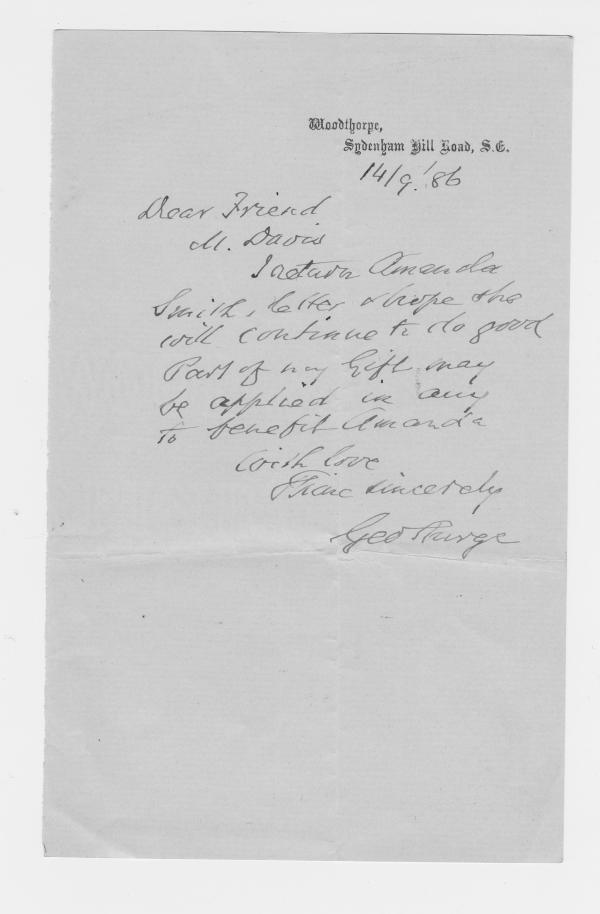 Woodthorpe,
Sydenham Hill Road, S.E.
14/9/86
Dear Friend
M. Davis
I return Amanda
Smith, letter & hope she
will continue to do good
Part of my Gift may
be applied in any
to benefit Amanda
With love
Thine sincerely
Geo Sturge